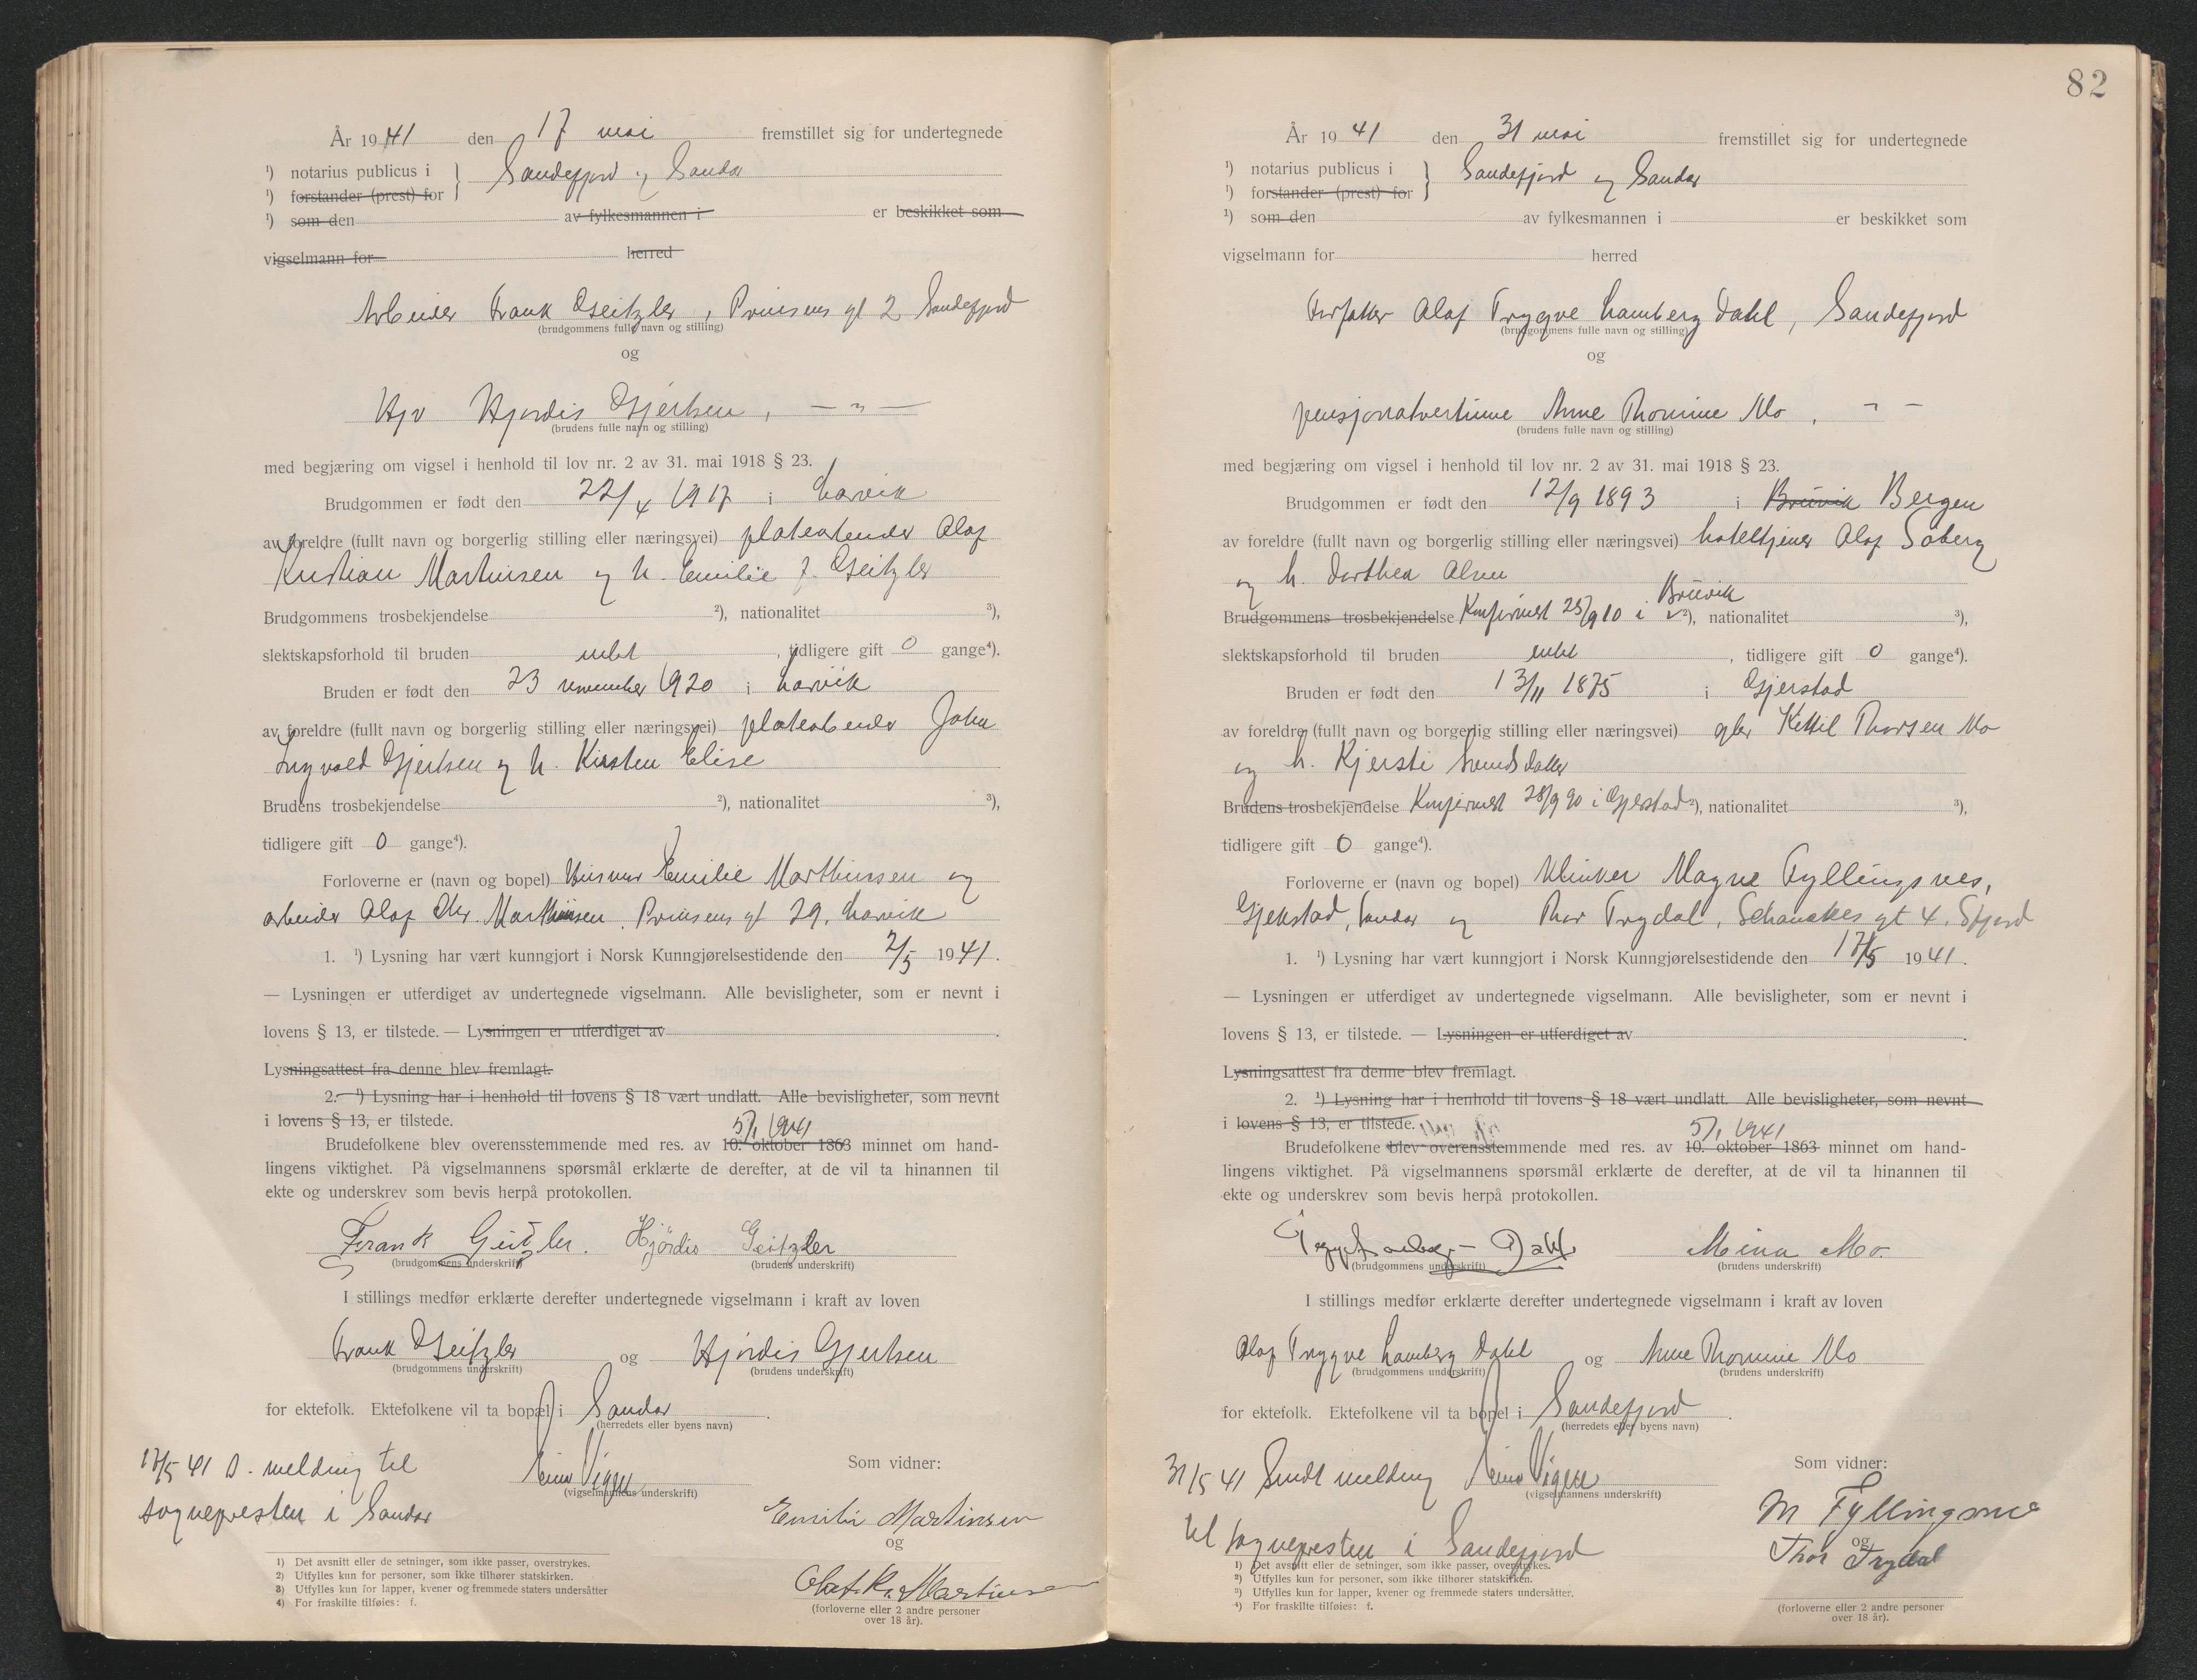 År 1941 den 17 mai fremstillet sig for undertegnede
¹) notarius publicus i } Sandefjord og Sandar
¹) forstander (prest) for
¹) som den av fylkesmannen i er beskikket som
vigselmann for herred
Arbeider Frank Geitzler, Prinsens gt 2 Sandefjord
(brudgommens fulle navn og stilling)
og
Hjv Hjørdis Gjertsen, — " —
(brudens fulle navn og stilling)
med begjæring om vigsel i henhold til lov nr. 2 av 31. mai 1918 § 23.
Brudgommen er født den 22/4 1917 i Larvik
av foreldre (fullt navn og borgerlig stilling eller næringsvei) platearbeider Olaf
Kristian Marthinsen og h. Emilie f. Geitzler
Brudgommens trosbekjendelse ²), nationalitet ³),
slektskapsforhold til bruden intet, tidligere gift 0 gange⁴).
Bruden er født den 23 november 1920 i Larvik
av foreldre (fullt navn og borgerlig stilling eller næringsvei) platearbeider John
Ingvald Gjertsen og h. Kirsten Elise
Brudens trosbekjendelse ²), nationalitet ³),
tidligere gift 0 gange⁴).
Forloverne er (navn og bopel) Husmor Emilie Marthinsen og
arbeider Olaf Chr. Marthinsen, Prinsens gt 29, Larvik
1. ¹) Lysning har vært kunngjort i Norsk Kunngjørelsestidende den 2/5 1941.
— Lysningen er utferdiget av undertegnede vigselmann. Alle bevisligheter, som er nevnt i
lovens § 13, er tilstede. — Lysningen er utferdiget av .
Lysningsattest fra denne blev fremlagt.
2. ¹) Lysning har i henhold til lovens § 18 vært undlatt. Alle bevisligheter, som nevnt
i lovens § 13, er tilstede.
5/1 1941
Brudefolkene blev overensstemmende med res. av 10. oktober 1863 minnet om hand-
lingens viktighet. På vigselmannens spørsmål erklærte de derefter, at de vil ta hinannen til
ekte og underskrev som bevis herpå protokollen.
Frank Geitzler. Hjørdis Geitzler
(brudgommens underskrift) (brudens underskrift)
I stillings medfør erklærte derefter undertegnede vigselmann i kraft av loven
Frank Geitzler og Hjørdis Gjertsen
(brudgommens underskrift) (brudens underskrift)
for ektefolk. Ektefolkene vil ta bopæl i Sandar.
(herredets eller byens navn)
17/5 41 S. melding til
sognepresten i Sandar
Vigen
(vigselmannens underskrift)
Som vidner:
Emilie Martinsen
og
Olaf Kr. Martinsen
(forloverne eller 2 andre personer
over 18 år).
1) Det avsnitt eller de setninger, som ikke passer, overstrykes.
2) Utfylles kun for personer, som ikke tilhører statskirken.
3) Utfylles kun for lapper, kvener og fremmede staters undersåtter
4) For fraskilte tilføies: f.
82
År 1941 den 31 mai fremstillet sig for undertegnede
¹) notarius publicus i } Sandefjord og Sandar
¹) forstander (prest) for
¹) som den av fylkesmannen i er beskikket som
vigselmann for herred
Forfatter Olaf Trygve Lamberg Dahl, Sandefjord
(brudgommens fulle navn og stilling)
og
pensjonatvertinne Anne Thomine Mo, - " -
(brudens fulle navn og stilling)
med begjæring om vigsel i henhold til lov nr. 2 av 31. mai 1918 § 23.
Brudgommen er født den 12/9 1893 i Bruvik Bergen
av foreldre (fullt navn og borgerlig stilling eller næringsvei) hotelltjener Olaf Soberg
og h. Dorthea Olsen
Bruvik
Brudgommens trosbekjendelse Konfirmert 25/9 10 i ²), nationalitet ³),
slektskapsforhold til bruden intet, tidligere gift 0 gange⁴).
Bruden er født den 13/11 1875 i Gjerstad
av foreldre (fullt navn og borgerlig stilling eller næringsvei) gbr Kettil Thorsen Mo
og h. Kjersti Svendsdatter
Brudens trosbekjendelse Konfirmert 28/9 90 i Gjerstad ²), nationalitet ³),
tidligere gift 0 gange⁴).
Forloverne er (navn og bopel) Klinker Magne Fyllingsnes,
Gjekstad, Sandar og Thor Trydal, Schanckes gt 4, Sfjord
1. ¹) Lysning har vært kunngjort i Norsk Kunngjørelsestidende den 17/5 1941.
— Lysningen er utferdiget av undertegnede vigselmann. Alle bevisligheter, som er nevnt i
lovens § 13, er tilstede. — Lysningen er utferdiget av .
Lysningsattest fra denne blev fremlagt.
2. ¹) Lysning har i henhold til lovens § 18 vært undlatt. Alle bevisligheter, som nevnt
i lovens § 13, er tilstede.
5/1 1941
Brudefolkene blev overensstemmende med res. av 10. oktober 1863 minnet om hand-
lingens viktighet. På vigselmannens spørsmål erklærte de derefter, at de vil ta hinannen til
ekte og underskrev som bevis herpå protokollen.
Trygve Lamberg-Dahl Mina Mo.
(brudgommens underskrift) (brudens underskrift)
I stillings medfør erklærte derefter undertegnede vigselmann i kraft av loven
Olaf Trygve Lamberg Dahl og Anne Thomine Mo
(brudgommens underskrift) (brudens underskrift)
for ektefolk. Ektefolkene vil ta bopel i Sandefjord.
(herredets eller byens navn)
31/5 41 Sendt melding
til sognepresten i Sandefjord
Vigen
(vigselmannens underskrift)
Som vidner:
M Fyllingsnes
og
Thor Trydal
(forloverne eller 2 andre personer
over 18 år).
¹) Det avsnitt eller de setninger, som ikke passer, overstrykes.
²) Utfylles kun for personer, som ikke tilhører statskirken.
³) Utfylles kun for lapper, kvener og fremmede staters undersåtter.
⁴) For fraskilte tilføies: f.